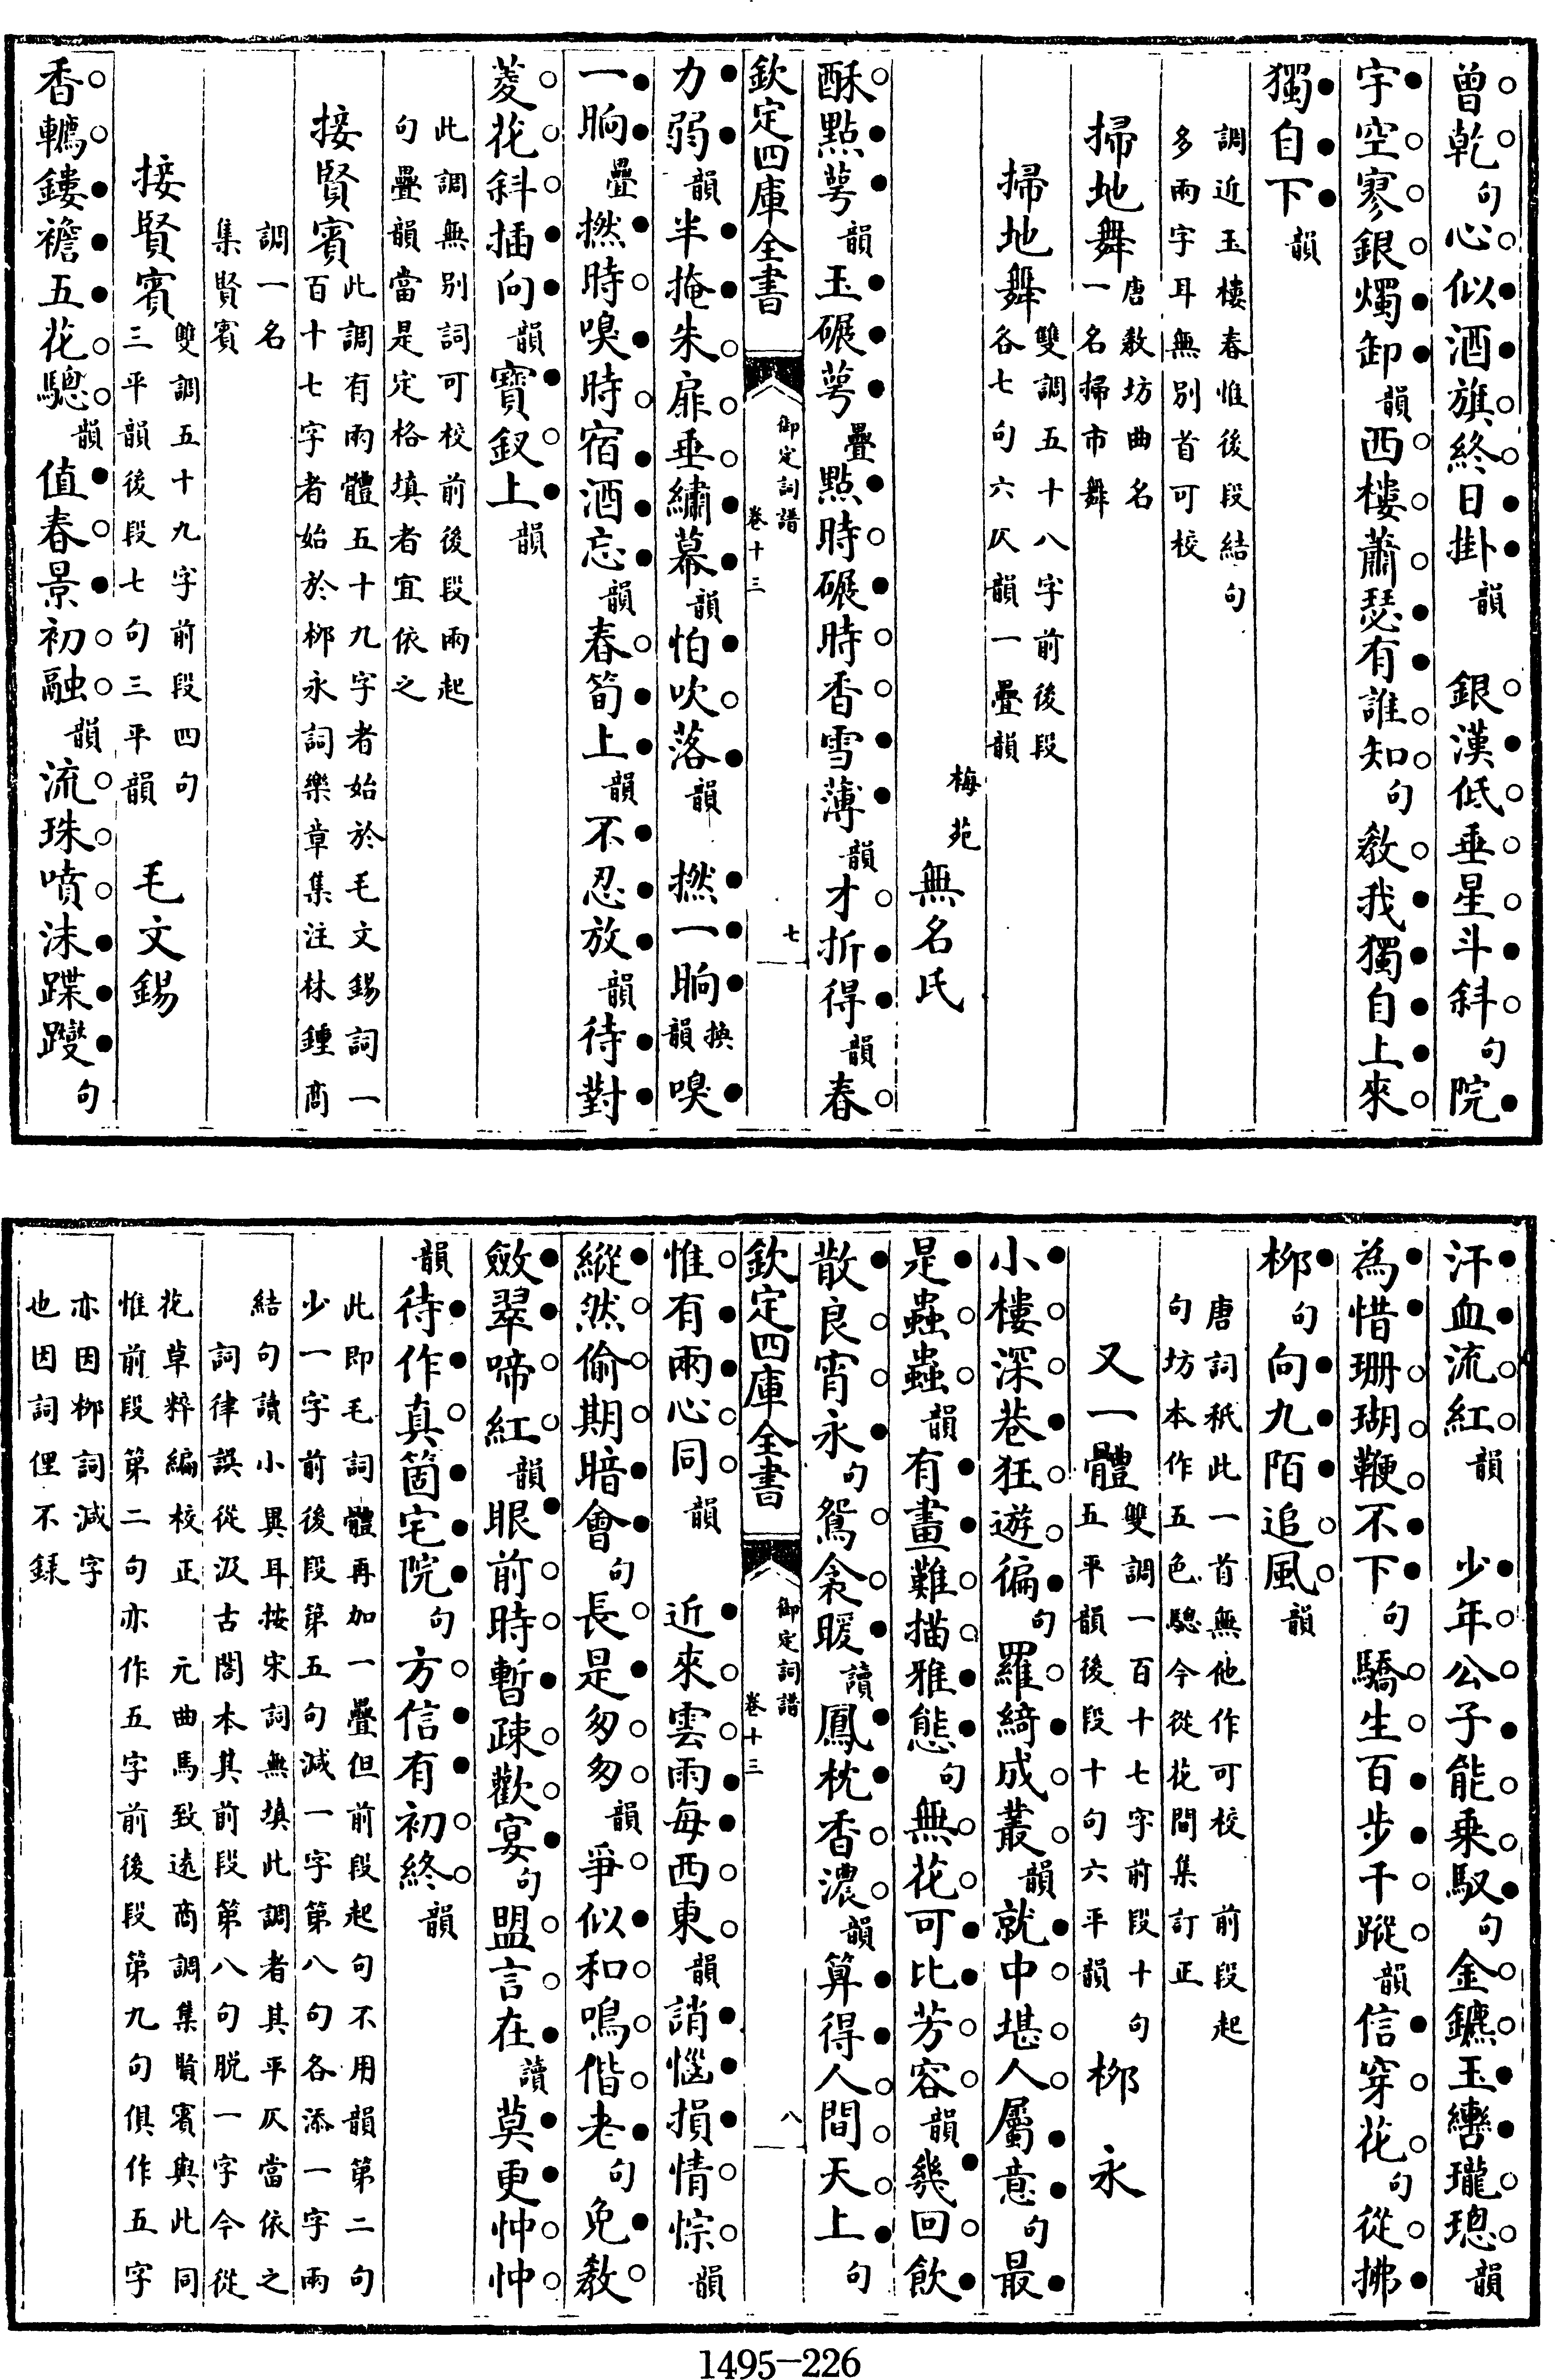 曾乾句心似酒旗終日掛韻　銀漢低垂星斗斜句院
宇空寥銀燭卸韻西樓蕭瑟有誰知句教我獨自上來
獨自下韻
調近玉樓春惟後段結句
多兩字耳無別首可校
掃地舞唐教坊曲名
一名掃市舞
掃地舞雙調五十八字前後段
各七句六仄韻一疊韻
梅苑無名氏
酥點萼韻玉碾萼疊點時碾時香雪薄韻才折得韻春
欽定四庫全書
御定詞譜
卷十三
七
力弱韻半掩朱扉垂繡幕韻怕吹落韻　撚一晌換韻嗅
一晌疊撚時嗅時宿酒忘韻春筍上韻不忍放韻待對
菱花斜插向韻寶釵上韻
此調無別詞可校前後段兩起
句疊韻當是定格填者宜依之
接賢賓此調有兩體五十九字者始於毛文錫詞一
百十七字者始於柳永詞樂章集注林鍾商
調一名
集賢賓
接賢賓雙調五十九字前段四句
三平韻後段七句三平韻　毛文錫
香韉鏤襜五花驄韻值春景初融韻流珠噴沫躞蹀句
汗血流紅韻　少年公子能乘馭句金鑣玉轡瓏璁韻
為惜珊瑚鞭不下句驕生百步千蹤韻信穿花句從拂
柳句向九陌追風韻
唐詞秪此一首無他作可校　前段起
句坊本作五色驄今從花間集訂正
又一體雙調一百十七字前段十句
五平韻後段十句六平韻　柳　永
小樓深巷狂遊徧句羅綺成叢韻就中堪人屬意句最
是蟲蟲韻有畫難描雅態句無花可比芳容韻幾回飲
散良宵永句鴛衾暖讀鳳枕香濃韻算得人間天上句
欽定四庫全書
御定詞譜
卷十三
八
惟有兩心同韻　近來雲雨每西東韻誚惱損情悰韻
縱然偷期暗會句長是匆匆韻爭似和鳴偕老句免教
斂翠啼紅韻眼前時暫疎歡宴句盟言在讀莫更忡忡
韻待作真箇宅院句方信有初終韻
此即毛詞體再加一疊但前段起句不用韻第二句
少一字前後段第五句減一字第八句各添一字兩
結句讀小異耳按宋詞無填此調者其平仄當依之
詞律誤從汲古閣本其前段第八句脱一字今從
花草粹編校正　元曲馬致遠商調集賢賓與此同
惟前段第二句亦作五字前後段第九句俱作五字
亦因柳詞減字
也因詞俚不錄
1495—226